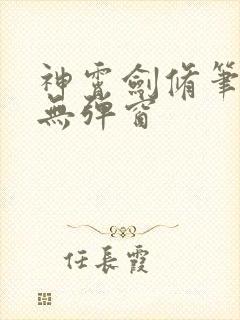 神霄劍脩筆
無彈窗
任長霞